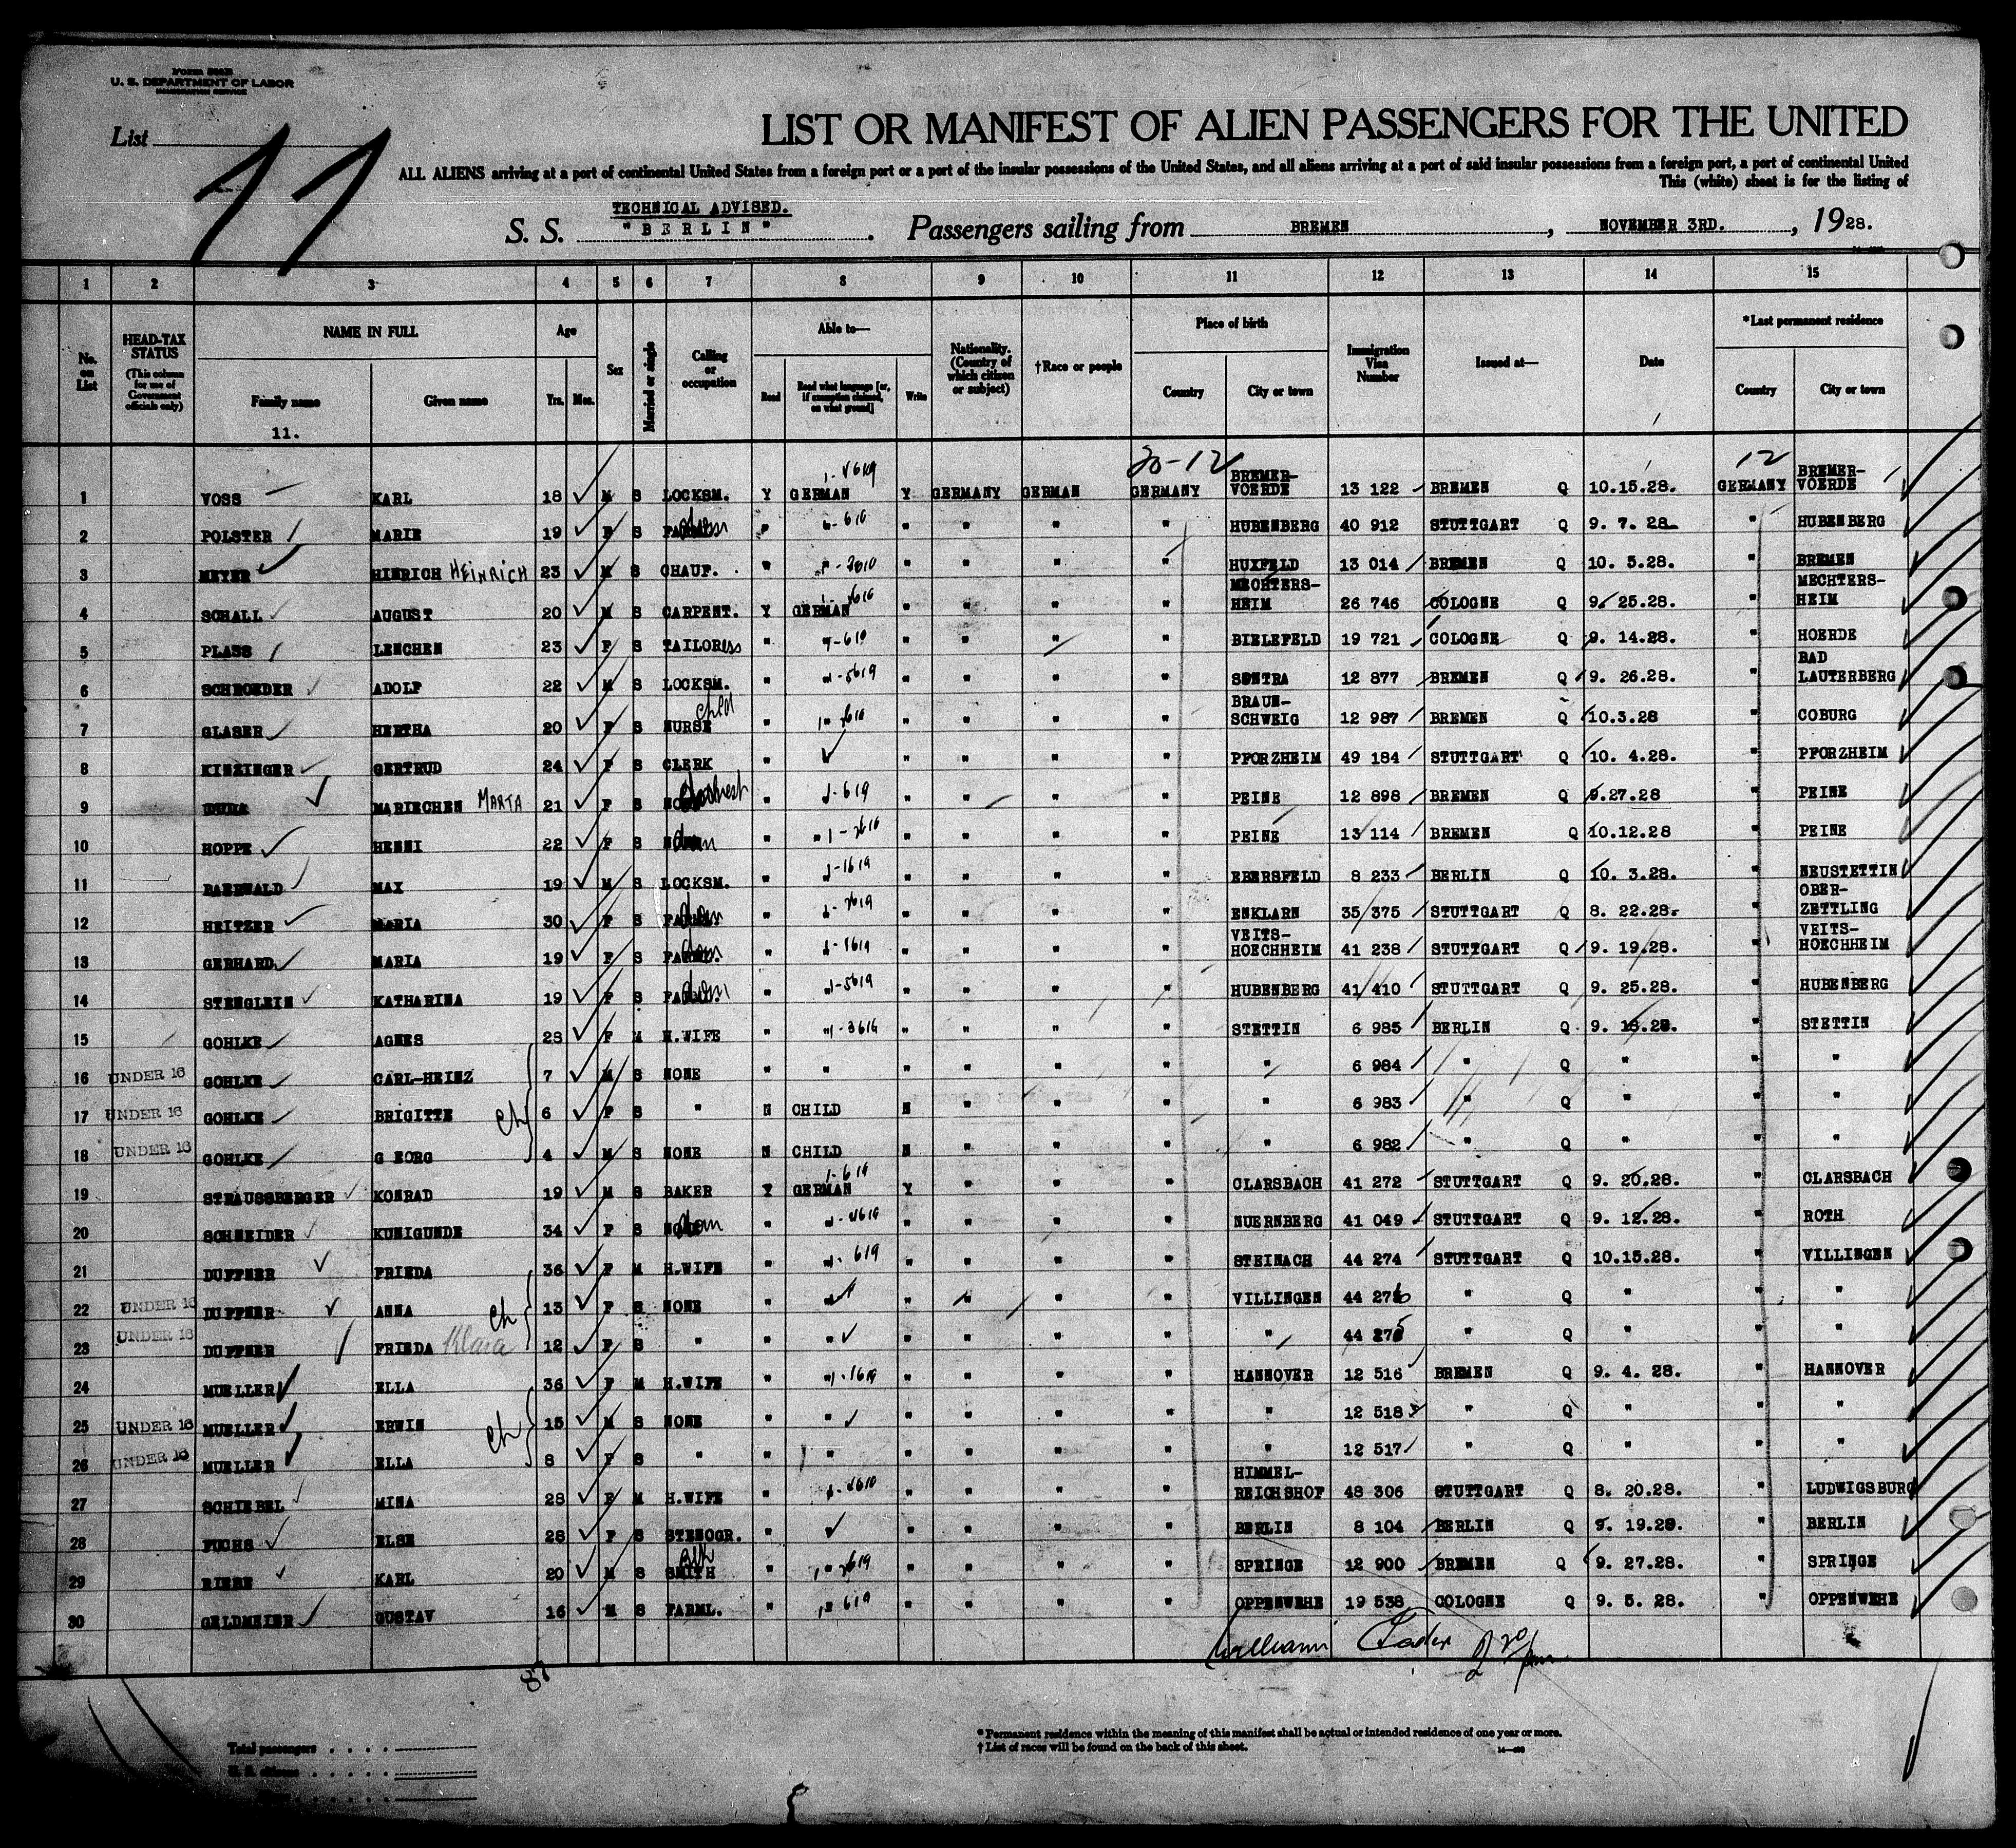 Form 500B
U. S. DEPARTMENT OF LABOR
IMMIGRATION SERVICE
List 11
LIST OR MANIFEST OF ALIEN PASSENGERS FOR THE UNITED
ALL ALIENS arriving at a port of continental United States from a foreign port or a port of the insular possessions of the United States, and all aliens arriving at a port of said insular possessions from a foreign port, a port of continental United
This (white) sheet is for the listing of
TECHNICAL ADVISED.
S. S. "BERLIN". Passengers sailing from BREMEN, NOVEMBER 3RD., 1928.
1 2 3 4 5 6 7 8 9 10 11 12 13 14 15
No. on List
HEAD-TAX STATUS (This column for use of Government officials only)
NAME IN FULL Family name Given name
Age Yrs. Mos.
Sex
Married or single
Calling or occupation
Able to— Read Read what language [or, if exemption claimed, on what ground] Write
Nationality. (Country of which citizen or subject)
†Race or people
Place of birth Country City or town
Immigration Visa Number
Issued at—
Date
*Last permanent residence Country City or town
11.
20-12 12
1 VOSS KARL 18 M S LOCKSM. Y GERMAN Y GERMANY GERMAN GERMANY BREMER-VOERDE 13 122 BREMEN Q 10.15.28. GERMANY BREMER-VOERDE
2 POLSTER MARIE 19 F S " " " " " HUBENBERG 40 912 STUTTGART Q 9. 7. 28. " HUBENBERG
3 MEYER HINRICH HEINRICH 23 M S CHAUF. " " " " " " HUXFELD 13 014 BREMEN Q 10. 5.28. " BREMEN
4 SCHALL AUGUST 20 M S CARPENT. Y GERMAN " " " " MECHTERS-HEIM 26 746 COLOGNE Q 9. 25.28. " MECHTERS-HEIM
5 PLASS LENCHEN 23 F S TAILORess " " " " " " BIELEFELD 19 721 COLOGNE Q 9. 14.28. " HOERDE
6 SCHROEDER ADOLF 22 M S LOCKSM. " " " " " " SONTRA 12 877 BREMEN Q 9. 26.28. " BAD LAUTERBERG
7 GLASER HERTHA 20 F S child NURSE " " " " " " BRAUN-SCHWEIG 12 987 BREMEN Q 10.3.28 " COBURG
8 KINZINGER GERTRUD 24 F S CLERK " " " " " PFORZHEIM 49 184 STUTTGART Q 10. 4.28. " PFORZHEIM
9 MARIECHEN MARTA 21 F S " " " " " PEINE 12 898 BREMEN Q 9.27.28 " PEINE
10 HOPPE HENNI 22 F S " " " " " " PEINE 13 114 BREMEN Q 10.12.28 " PEINE
11 BAERWALD MAX 19 M S LOCKSM. " " " " " EBERSFELD 8 233 BERLIN Q 10. 3.28. " NEUSTETTIN
12 HEITZER MARIA 30 F S " " " " " ENKLARN 35 375 STUTTGART Q 8. 22.28. " OBER-ZETTLING
13 GEBHARD MARIA 19 F S " " " " " VEITS-HOECHHEIM 41 238 STUTTGART Q 9. 19.28. " VEITS-HOECHHEIM
14 STENGLEIN KATHARINA 19 F S " " " " " HUBENBERG 41 410 STUTTGART Q 9. 25.28. " HUBENBERG
15 GOHLKE AGNES 28 F M H.WIFE " " " " " " STETTIN 6 985 BERLIN Q 9. 18.28. " STETTIN
16 UNDER 16 GOHLKE CARL-HEINZ 7 M S NONE " " " " " " " 6 984 " Q " " "
17 UNDER 16 GOHLKE BRIGITTE ch 6 F S " N CHILD N " " " " 6 983 " Q " " "
18 UNDER 16 GOHLKE G EORG 4 M S NONE N CHILD N " " " " 6 982 " Q " " "
19 STRAUSSBERGER KONRAD 19 M S BAKER Y GERMAN Y " " " CLARSBACH 41 272 STUTTGART Q 9. 20.28. " CLARSBACH
20 SCHNEIDER KUNIGUNDE 34 F S " " " " " " NUERNBERG 41 049 STUTTGART Q 9. 12.28. " ROTH
21 DUFFNER FRIEDA 36 F M H.WIFE " " " " " " STEINACH 44 274 STUTTGART Q 10.15.28. " VILLINGEN
22 UNDER 16 DUFFNER ANNA ch 13 F S NONE " " " " " " VILLINGEN 44 276 " Q " " "
23 UNDER 16 DUFFNER FRIEDA Klara 12 F S " " " " " " " " 44 275 " Q " " "
24 MUELLER ELLA 36 F M H.WIFE " " " " " " HANNOVER 12 516 BREMEN Q 9. 4. 28. " HANNOVER
25 UNDER 16 MUELLER ERWIN ch 15 M S NONE " " " " " " " 12 518 " Q " " "
26 UNDER 16 MUELLER ELLA 8 F S " " " " " " " " 12 517 " Q " " "
27 SCHIEBEL MINA 28 F M H.WIFE " " " " " " HIMMEL-REICHSHOF 48 306 STUTTGART Q 8. 20.28. " LUDWIGSBURG
28 FUCHS ELSE 28 F S STENOGR. " " " " " BERLIN 8 104 BERLIN Q 9. 19.28. " BERLIN
29 KARL 20 M S SMITH " " " " " " SPRINGE 12 900 BREMEN Q 9. 27.28. " SPRINGE
30 GELDMEIER GUSTAV 16 M S FARML. " " " " " " OPPENWEHE 19 538 COLOGNE Q 9. 5. 28. " OPPENWEHE
William
87
Total passengers
U. S. citizens
* Permanent residence within the meaning of this manifest shall be actual or intended residence of one year or more.
† List of races will be found on the back of this sheet.